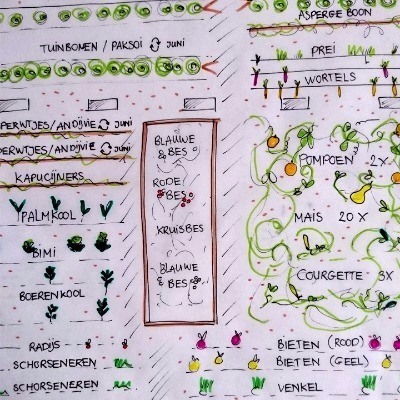 ASPERGE BOON
TUINBONEN / PAKSOI JUNI
PREI
WORTELS
PERWTJES/ANDIJVIE JUNI
PERWTJES/ANDIJVIE JUNI
KAPUCIJNERS
PALMKOOL
BIMI
BOERENKOOL
RADIJS
SCHORSENEREN
SCHORSENEREN
BLAUWE
& BES
RODE
BES
KRUISBES
BLAUWE
& BES
POMPOEN 2x
MAIS 20 x
COURGETTE 3x
BIETEN (ROOD)
BIETEN (GEEL)
VENKEL